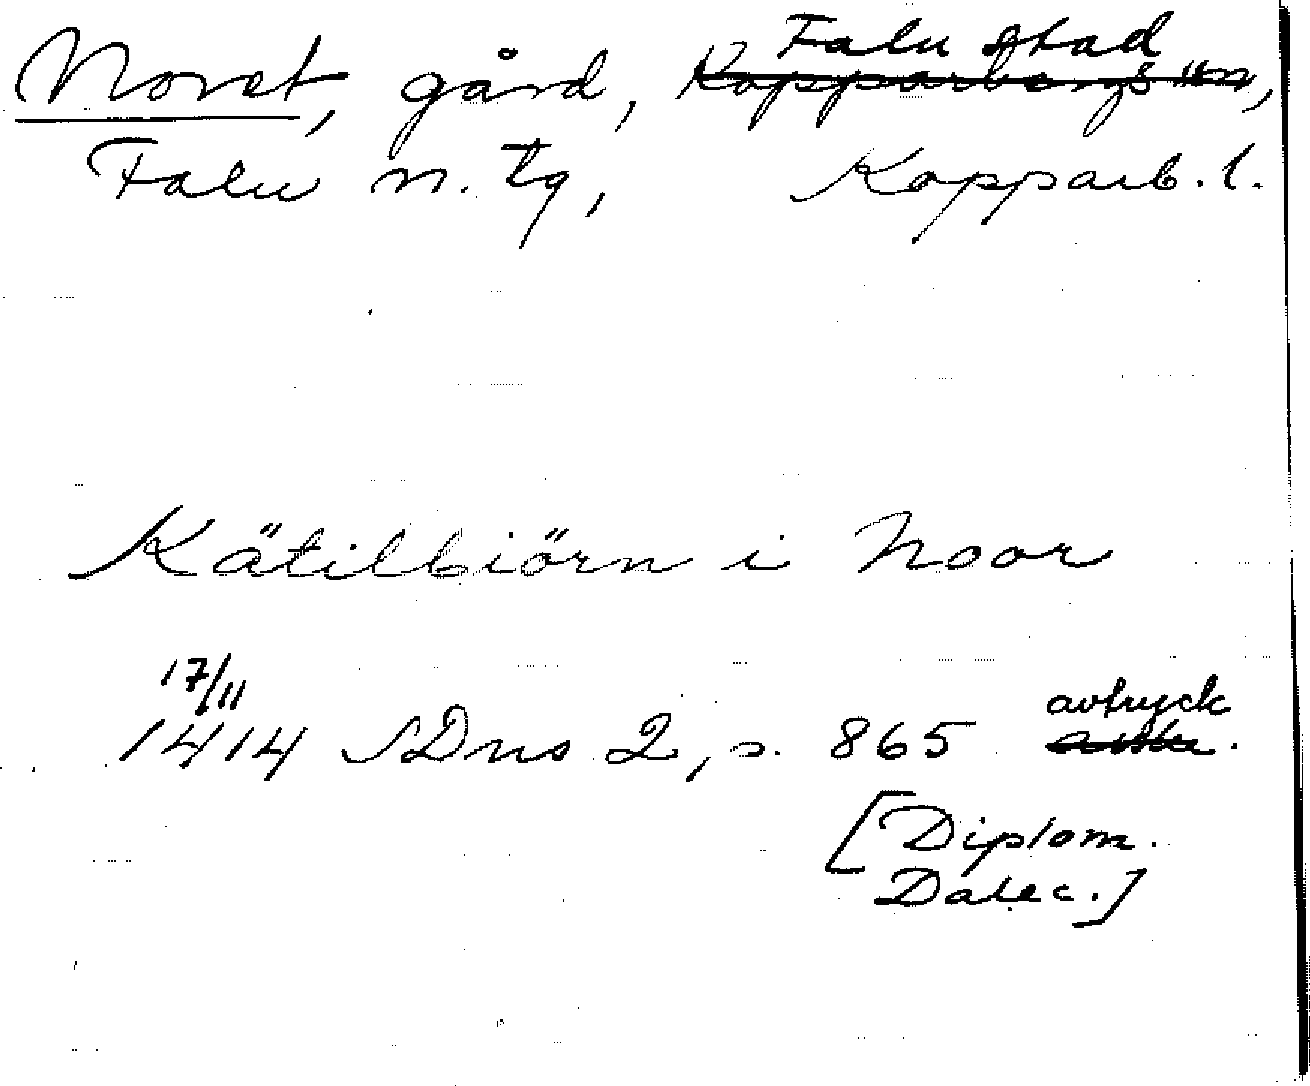 Falu stad
Noret, gård, Kopparbergs sn,
Falu n. tg, Kopparb. l.
Kätilbiörn i Noor
17/11
1414 SDns 2, s. 865 avtryck
[Diplom.
Dalec.]